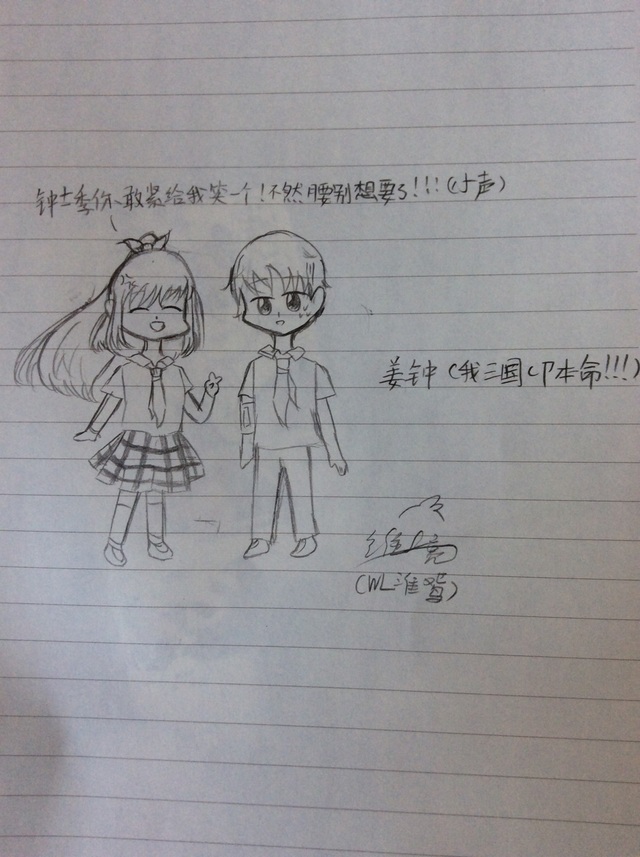 钟士季你敢紧给我笑一个!不然腰别想要了!!!(小声)
姜钟(我三国CP本命!!!)
维亮
(WL淮鸳)